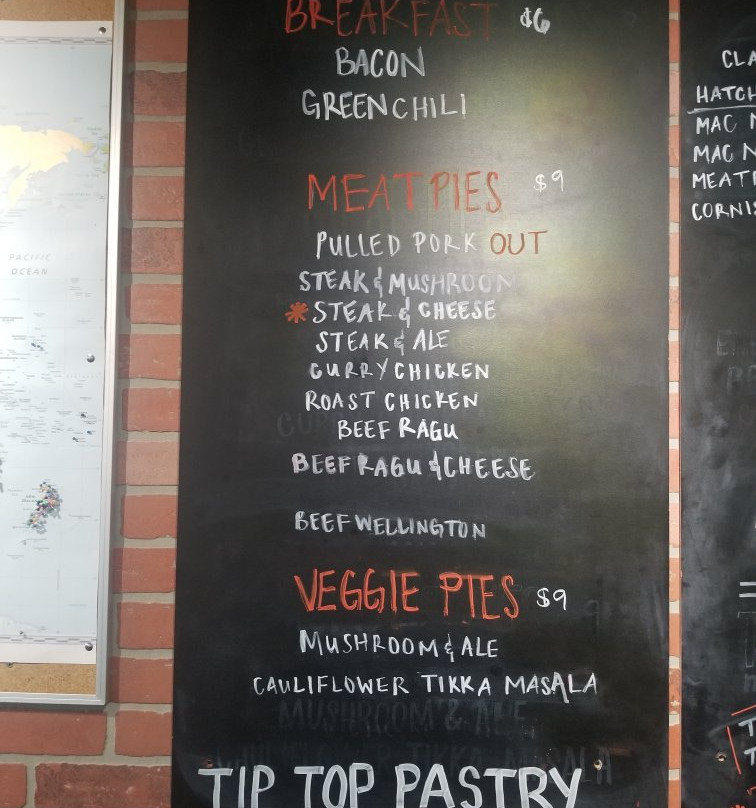 BREAKFAST $6
BACON
GREEN CHILI
MEAT PIES $9
PULLED PORK OUT
STEAK & MUSHROOM
* STEAK & CHEESE
STEAK & ALE
CURRY CHICKEN
ROAST CHICKEN
BEEF RAGU
BEEF RAGU & CHEESE
BEEF WELLINGTON
VEGGIE PIES $9
MUSHROOM & ALE
CAULIFLOWER TIKKA MASALA
MUSHROOM & ALE
TIKKA MASALA
TIP TOP PASTRY
PACIFIC
OCEAN
CLA
HATCH
MAC N
MAC N
MEAT
CORNIS